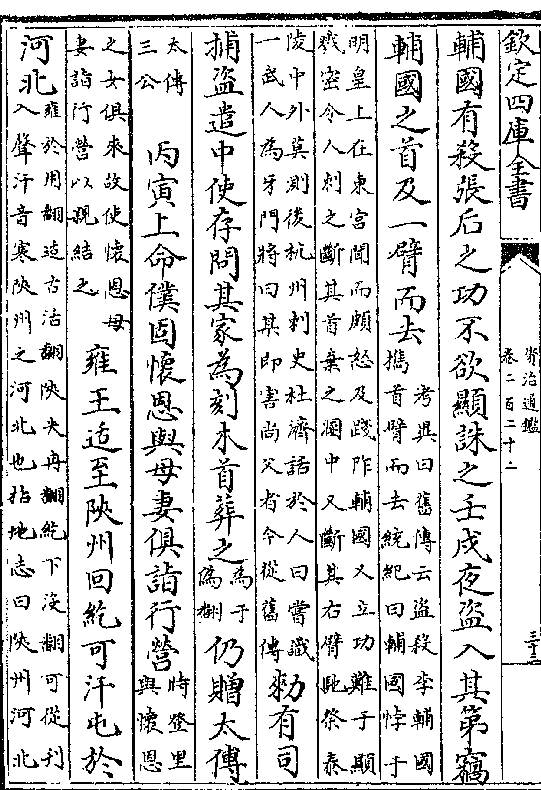 欽定四庫全書
資治通鑑
卷二百二十二
輔國有殺張后之功不欲顯誅之壬戌夜盜入其第竊
輔國之首及一臂而去
考異曰舊傳云盜殺李輔國
攜首臂而去統紀曰輔國悖于
明皇上在東宮聞而頗怒及踐阼輔國又立功難于顯
戮密令人刺之斷其首棄之溷中又斷其右臂馳祭泰
陵中外莫測後杭州刺史杜濟話於人曰嘗識
一武人為牙門將曰某即害尚父者今從舊傳
勑有司
捕盜遣中使存問其家為刻木首葬之
為于
偽翻
仍贈太傅
太傅
三公
丙寅上命僕固懷恩與母妻俱詣行營
時登里
與懷恩
之女俱來故使懷恩母
妻詣行營以親結之
雍王适至陜州回紇可汗屯於
河北
雍於用翻适古活翻陜失冉翻紇下沒翻可從刊
入聲汗音寒陜州之河北也括地志曰陜州河北